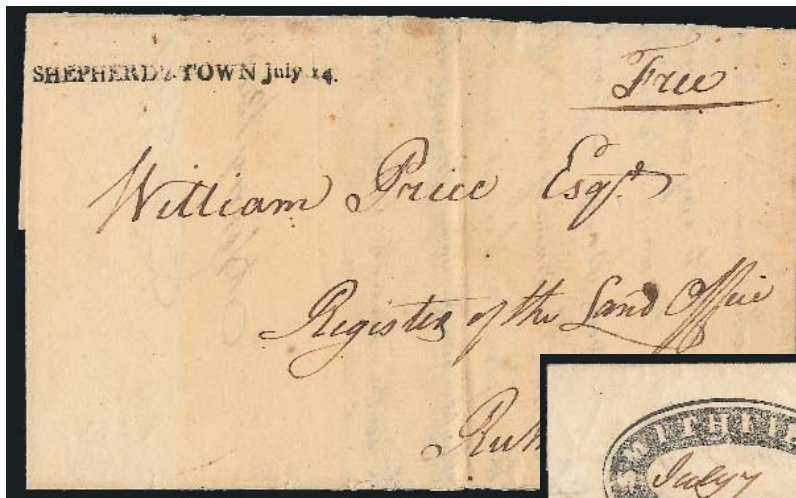 SHEPHERD'S-TOWN July 14.
Free
William Price Esqr.
Register of the Land Office
SMITHFIE
July